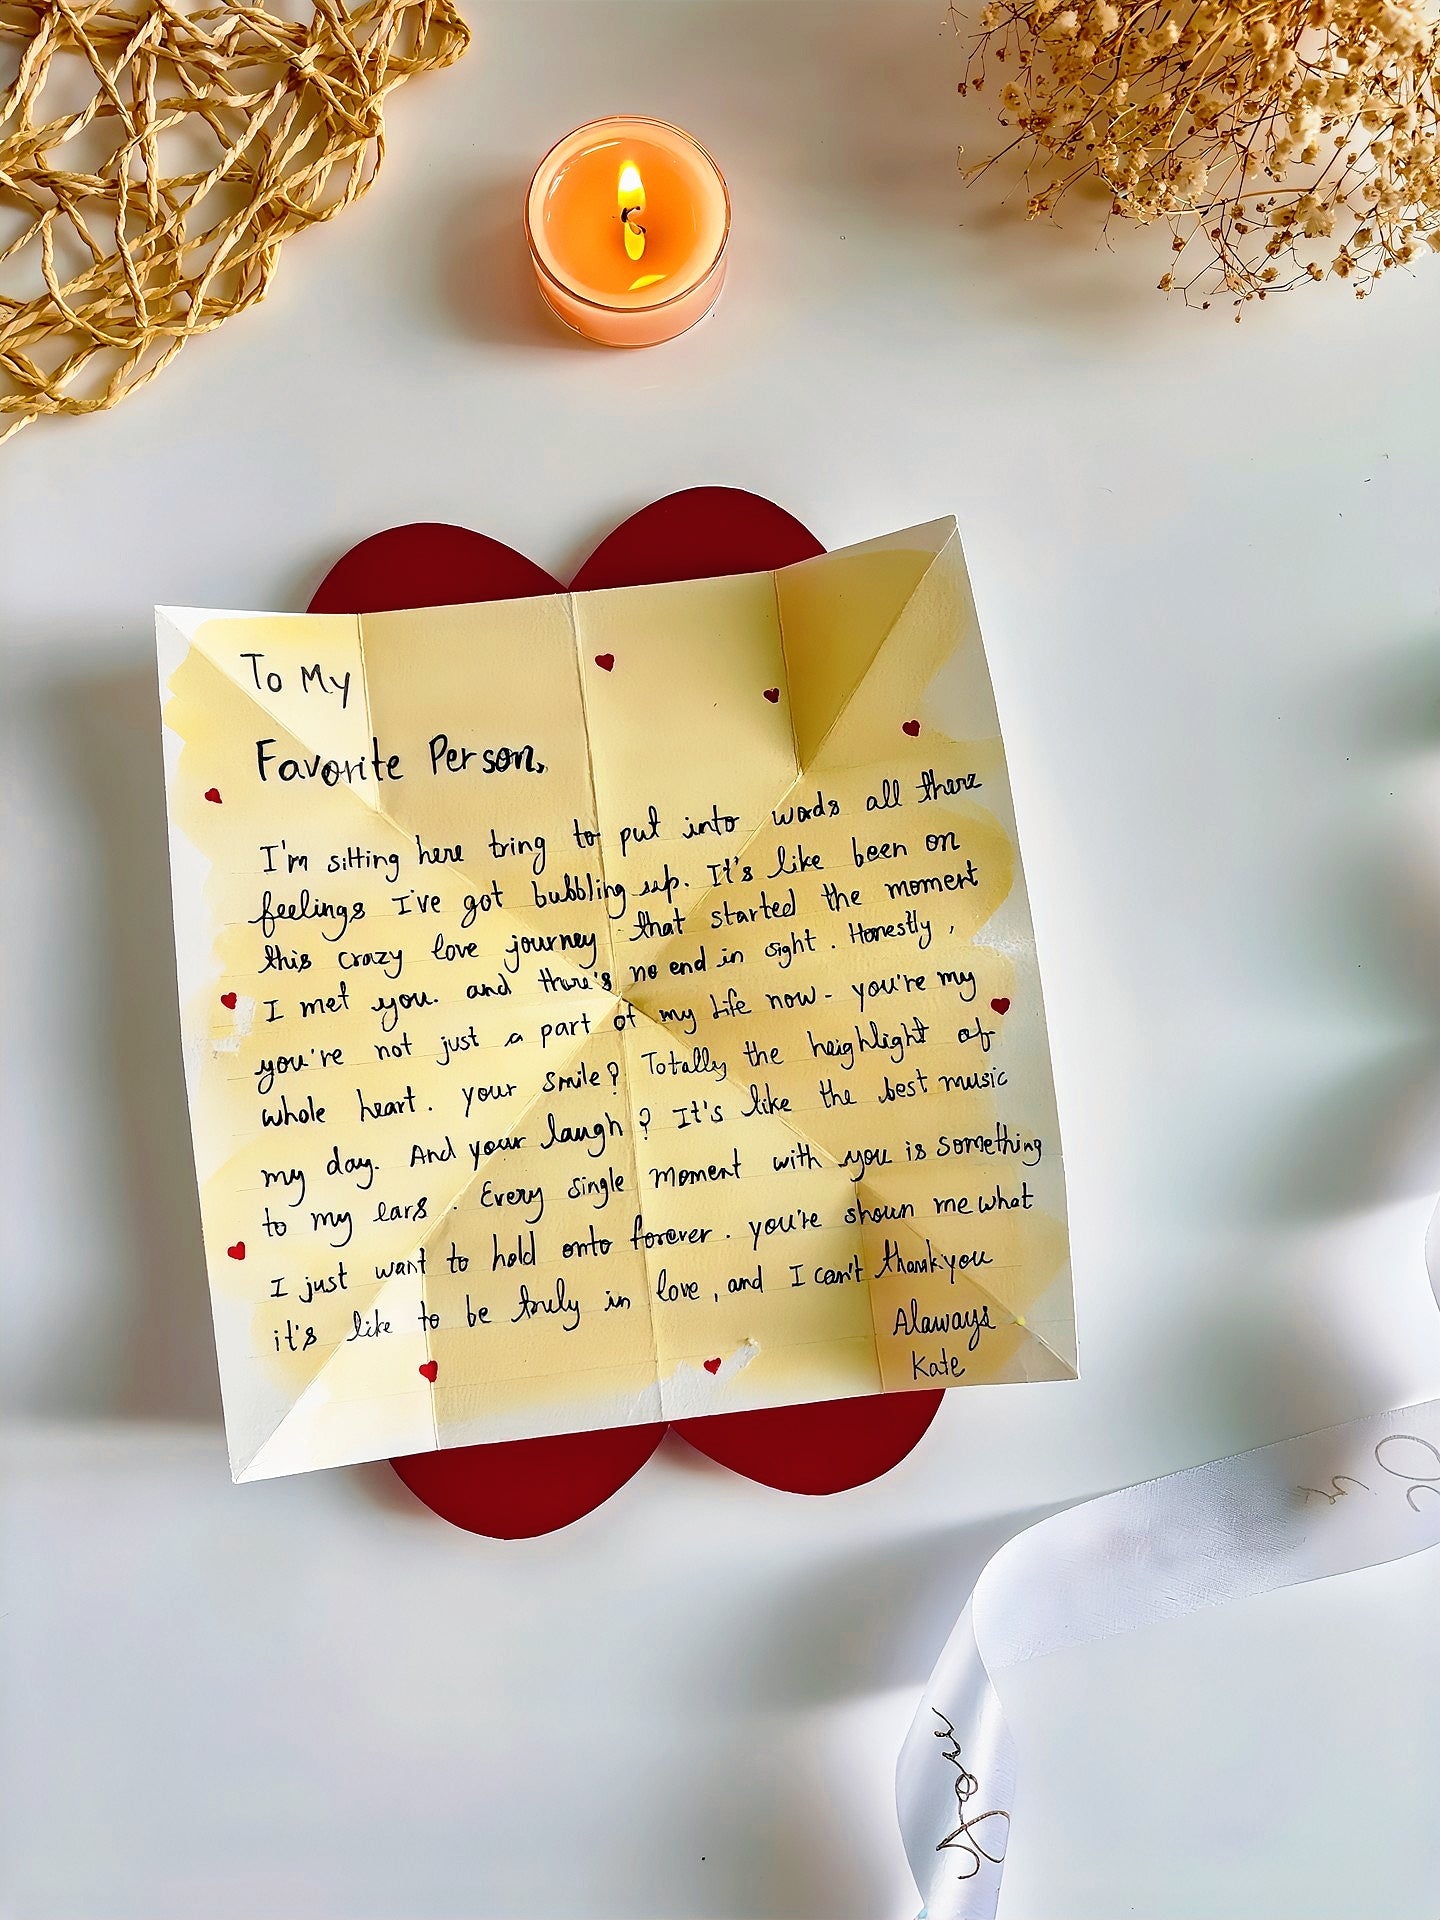 To My
Favorite Person,
I'm sitting here tring to put into words all there
feelings I've got bubbling up. It's like been on
this crazy love journey that started the moment
I met you. and there's no end in sight. Honestly,
you're not just a part of my life now - you're my
whole heart. your smile? Totally the heighlight of
my day. And your laugh? It's like the best music
to my ears. Every single moment with you is something
I just want to hold onto forever. you're shown me what
it's like to be truly in love, and I can't thank you
Alaways
Kate
Love